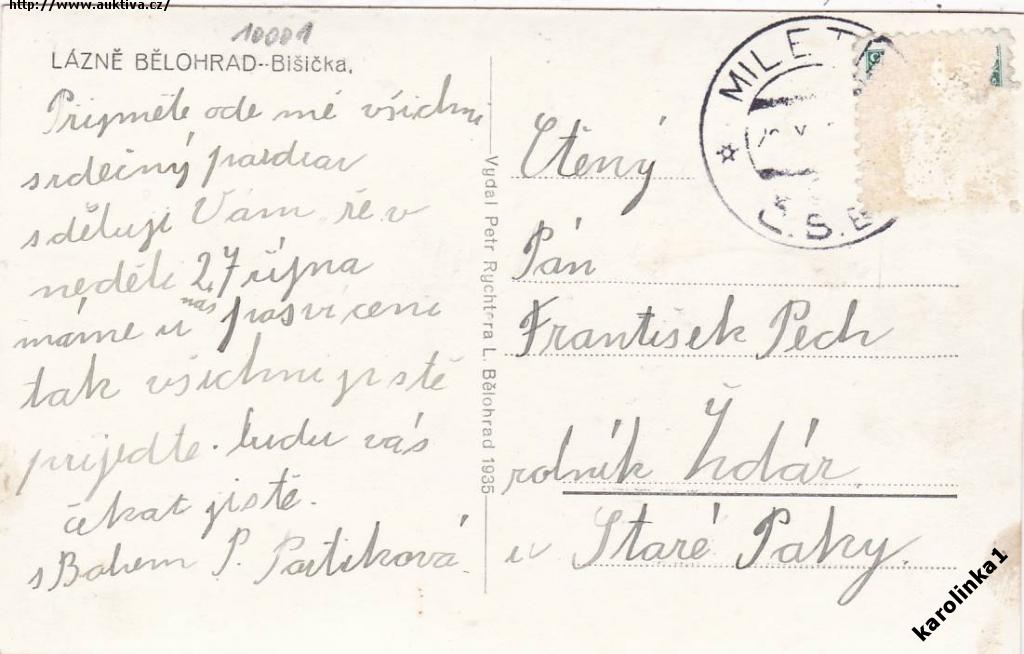 http://www.auktiva.cz/
10001
LÁZNĚ BĚLOHRAD--Bišička.
Přijměte ode mé všichni
srdečný pozdrav
sděluji Vám že v
neděli 27 října
máme u nás posvícení
tak všichni jistě
přijedte. budu vás
čekat jistě.
s Bohem P.
Vydal Petr Rychtera L. Bělohrad 1935
MILET
Č.S.
Ctěný
Pán
František Pech
rolník Ždár
u Staré Paky.
karolinka1